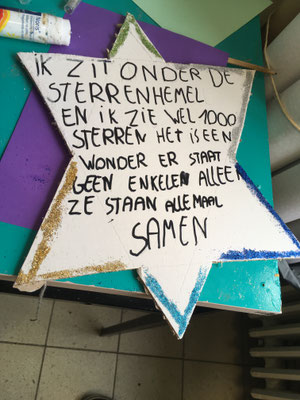 iK ZIT ONDER DE
STERRENHEMEL
EN iK ZiE WEL 1000
STERREN HET iS EEN
WONDER ER STAAT
GEEN ENKELEN ALLEEN
ZE STAAN ALLEMAAL
SAMEN